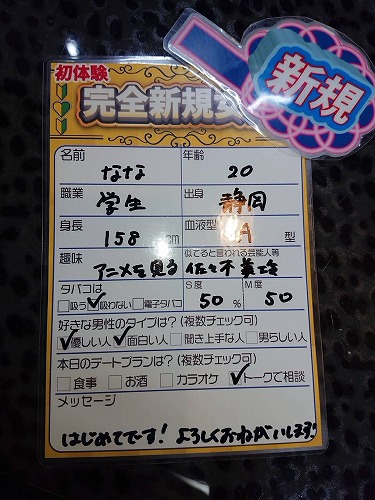 新規
初体験
完全新規
名前 なな 年齢 20
職業 学生 出身 静岡
身長 158 cm 血液型 A 型
趣味 アニメを見る 似てると言われる芸能人等 佐々木美玲
タバコは S度 M度
吸う 吸わない 電子タバコ 50 % 50
好きな男性のタイプは?(複数チェック可)
優しい人 面白い人 聞き上手な人 男らしい人
本日のデートプランは?(複数チェック可)
食事 お酒 カラオケ トークで相談
メッセージ
はじめてです! よろしくおねがいします!